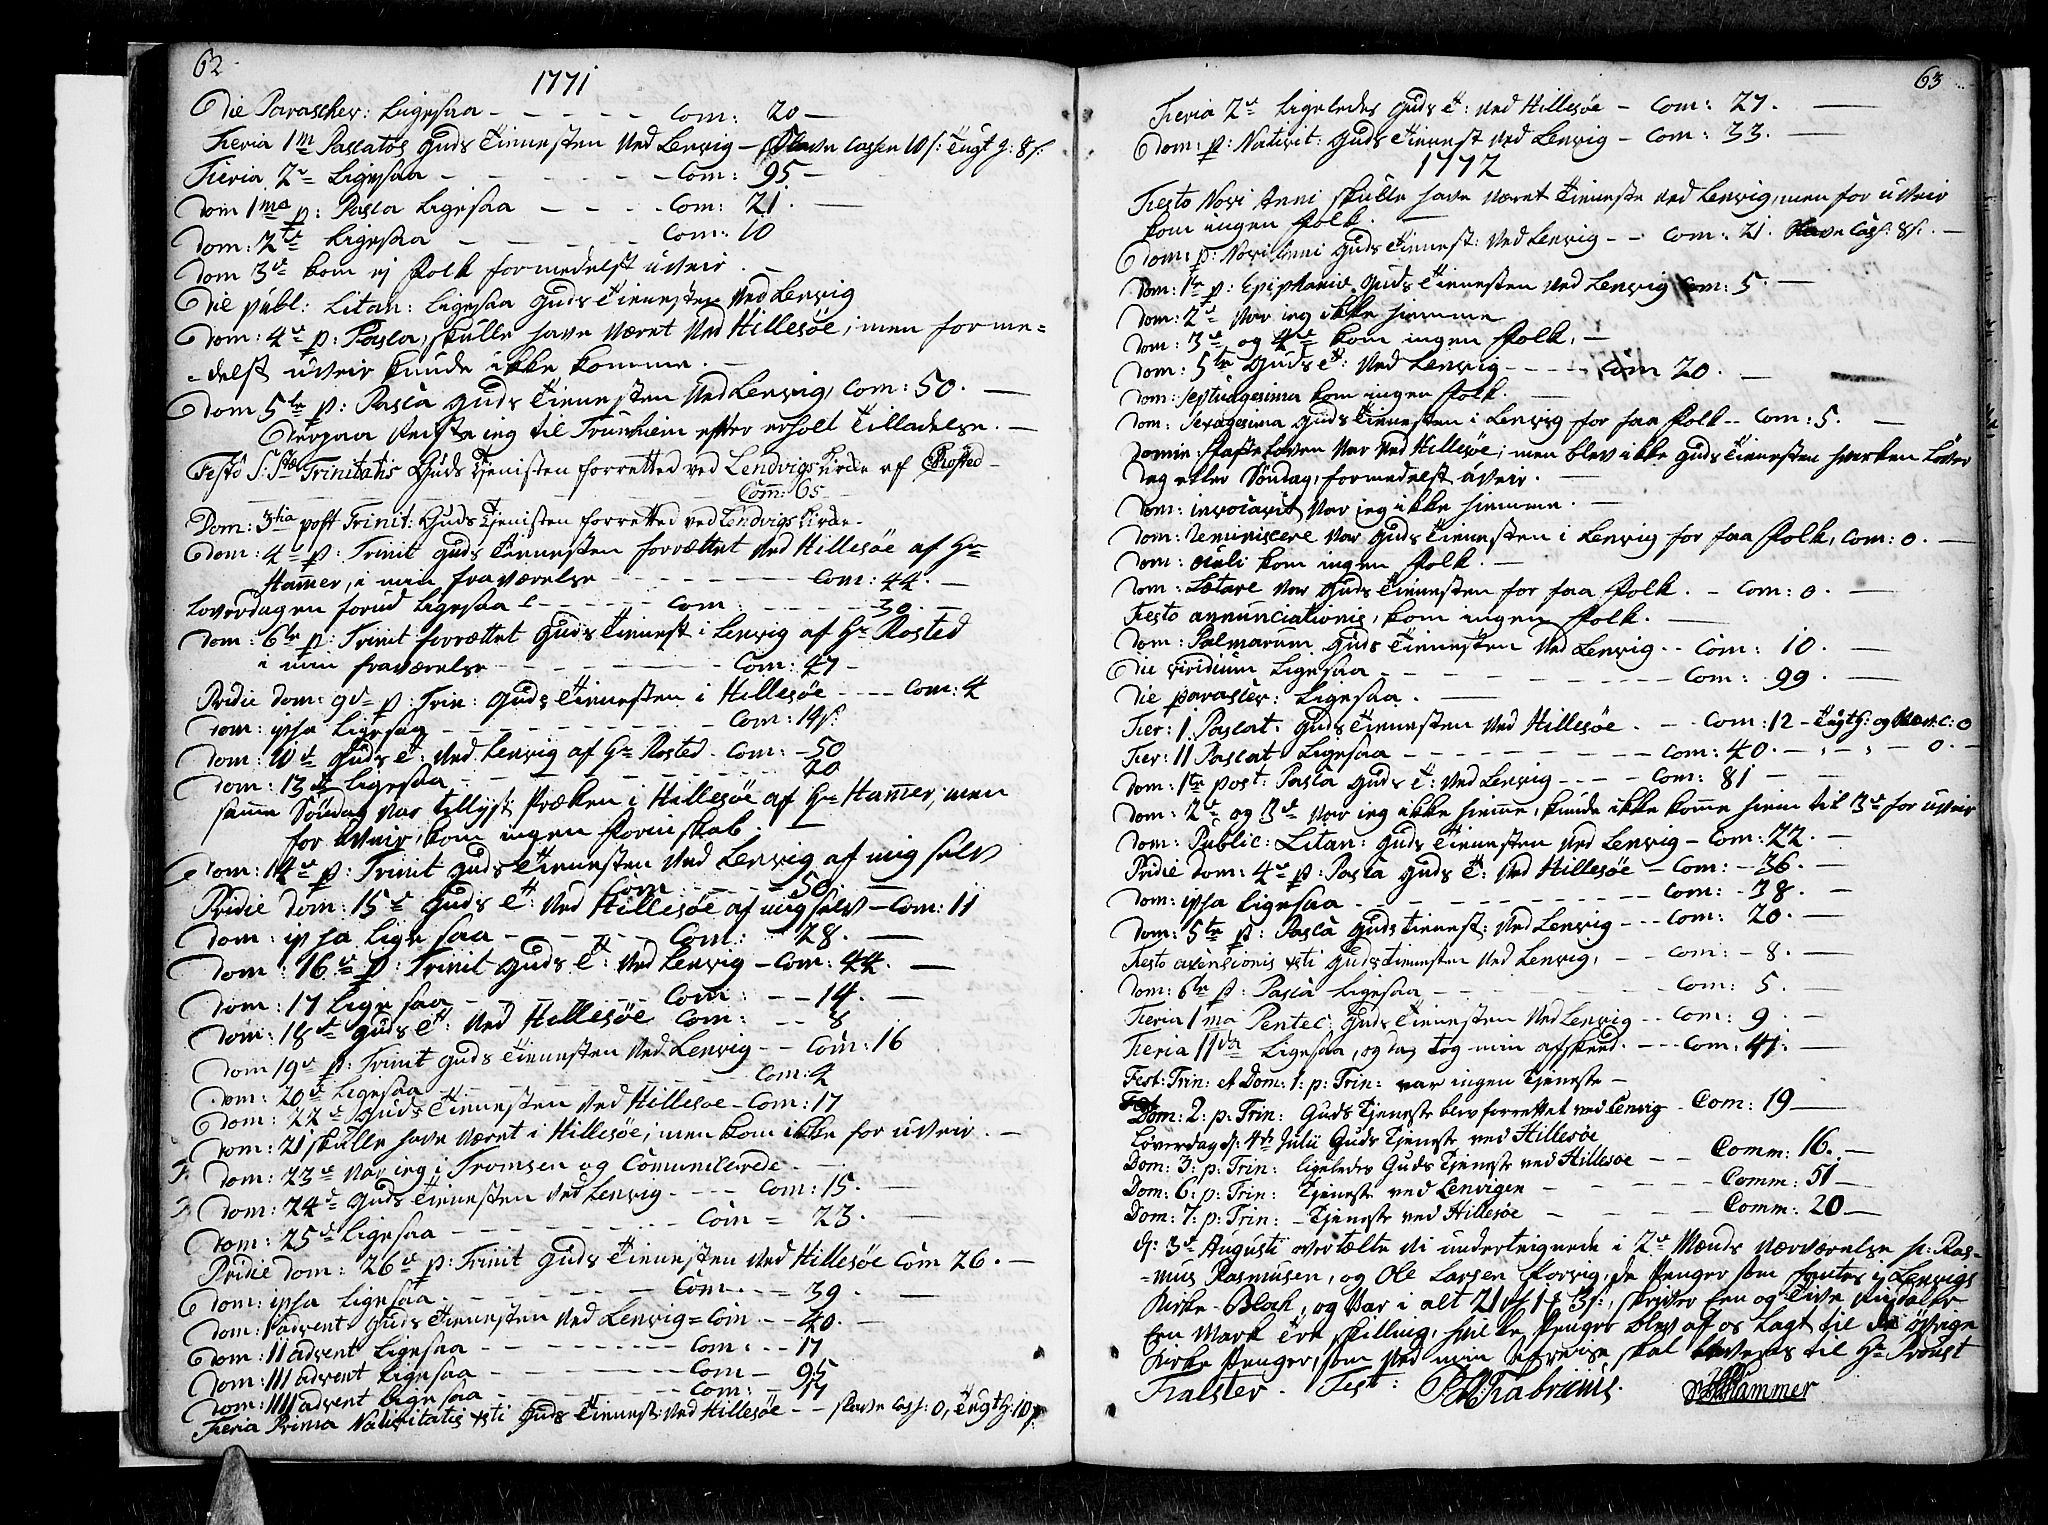 62
1771
Die Paraschev: Ligesaa - - - - - Com: 20 —
Feria 1m Pascatos Guds Tienesten Ved Lenvig — Slave Cassen 10 s: Tugt h: 8 s:
Feria 2de Ligesaa - - - - - - Com: 95 —
Dom 1ma p: Pasca Ligesaa - - - - Com: 21. —
Dom: 2de Ligesaa - - - - - Com: 10
Dom 3de kom ej Folk formedelst uveir. —
Die publ: Litan: Ligesaa Guds Tienesten Ved Lenvig
Dom: 4de p: Pasca, skulle have været Ved Hillesøe; men forme=
=delst uveir kunde ikke komme. —
Dom 5te p: Pasca Guds Tienesten Ved Lenvig, Com: 50. —
Derpaa reiste jeg til Trunhiem efter erholt Tilladelse. —
Festo S:Stæ Trinitatis Guds Tjenisten forretted ved Lendvigs Kirke af Rosted —
Com: 65
Dom: 3tia post Trinit: Guds Tjenisten forretted ved Lendvigs Kirke.
Dom: 4de p: Trinit Guds Tienesten forrættet Ved Hillesøe af Hr
Hamer, i min fraværelse - - - - - - Com: 44. —
Loverdagen forud Ligesaa - - - - - Com: - - - - 30. —
Dom: 6te p: Trinit forrættet Guds Tienest i Lenvig af Hr Rosted
i min fraværelse - - - - - - - Com: 47 —
Pridie dom: 9de p: Trin: Guds Tienesten i Hillesøe - - - - Com: 4
Dom: ipsa Ligesaa - - - - - - - - Com: 14
Dom: 10de Guds T: Ved Lenvig af Hr Rosted - Com: - 50
Dom: 13de Ligesaa - - - - - - - - - 20
samme Søndag var tillyst Præken i Hillesøe af Hr Hamer, men
for Uveir, kom ingen
Dom: 14de p: Trinit Guds Tienesten Ved Lenvig af mig selv
Com - - - - - 50. —
Pridie dom: 15de Guds T: Ved Hillesøe af mig selv — Com: 11
Dom: ipsa Ligesaa - - - - - Com: - 28. —
Dom: 16de p: Trinit Guds T: Ved Lenvig — Com: 44. —
Dom: 17 Ligesaa - - - - - - Com: - - 14. —
Dom: 18de Guds T: Ved Hillesøe Com: - - 8
Dom 19de p: Trinit Guds Tienesten Ved Lenvig - - Com: 16
Dom: 20de Ligesaa - - - - - - - - Com: 2
Dom: 22de Guds Tienesten Ved Hillesøe — Com: 17
Dom: 21 skulle have været i Hillesøe; men kom ikke for uveir. —
Dom: 23de Var jeg i Tromsen og Comunicerede. —
Dom: 24de Guds Tienesten Ved Lenvig. - - - Com: 15. —
Dom: 25de Ligesaa - - - - - - - - Com = 23. —
Pridie dom: 26de p: Trinit Guds Tienesten Ved Hillesøe Com 26. —
Dom: ipsa Ligesaa. - - - - - - Com. - - - 39. —
Dom: 1 advent Guds Tienesten Ved Lenvig = Com - - 40. —
Dom: 11 advent Ligesaa - - - - - - Com: - - 17
Dom: 111 advent Ligesaa - - - - - - Com — 95
Dom: 1111 advent Ligesaa - - - - - - Com: - 17
Feria Prima Nativitatis xsti Guds Tienest: Ved Hillesøe - - slave Cass: 0, Tugt h: 10 s.
63
Feria 2de Ligeledes Guds T: Ved Hillesøe — Com: 27. —
Dom: p: Nativit: Guds Tienest Ved Lenvig — Com: 33. —
1772
Festo Novi Anni skulle have været Tieneste ved Lenvig, men for uveir
kom ingen Folk. —
Dom: p: Novi Anni Guds Tienest: Ved Lenvig - - Com: 21. Slave Cass: 8 s. —
Dom: 1te p: Epiphanie Guds Tienesten Ved Lenvig Com: 5. —
Dom: 2de Var jeg ikke hiemme
Dom: 3de og 4de kom ingen Folk. —
Dom: 5te Guds T: Ved Lenvig - - - - Com 20. —
Dom: Septuagesima kom ingen Folk. —
Dom: Sexagesima Guds Tienesten i Lenvig for faa Folk - - Com: 5. —
Domin: Fastelaven Var Ved Hillesøe; men blev ikke Guds Tienesten hverken Løver
dag eller Søndag, formedelst uveir. —
Dom: invocavit Var jeg ikke hiemme. —
Dom: Reminiscere Var Guds Tienesten i Lenvig for faa Folk, Com: 0. —
Dom: oculi kom ingen Folk. —
Dom: Lætare Var Guds Tienesten for faa Folk. — Com: 0. —
Festo annunciationis, kom ingen Folk. —
Dom: Palmarum Guds Tienesten Ved Lenvig - - Com: 10. —
Die viridium Ligesaa - - - - - - - - Com: 99. —
Die parascev: Ligesaa. —
Fer: 1. Pascat: Guds Tienesten Ved Hillesøe. - - Com: 12 — Tugt h: og Slav: C: 0
Fer: 11 Pascat Ligesaa - - - - - - - - Com: 40. — , — , — 0. —
Dom: 1te post: Pasca Guds T: Ved Lenvig - - - - Com: 81 — —
Dom: 2de og 3de Var jeg ikke hieme, kunde ikke kome hiem til 3de for uveir
Dom: Public: Litan: Guds Tienesten Ved Lenvig — Com: 22. —
Pridie Dom: 4de p: Pasca Guds T: Ved Hillesøe — Com: - 36. —
Dom: ipsa Ligesaa - - - - - - - - - Com: - 38. —
Dom: 5te p: Pasca Guds Tienest: Ved Lenvig - - - Com: 20. —
Festo ascensionis xsti Guds Tienesten Ved Lenvig, - - Com: - 8. —
Dom: 6te p: Pasca Ligesaa - - - - - - Com: 5. —
Feria 1ma Pentec: Guds Tienesten Ved Lenvig - - Com: 9. —
Feria 11da Ligesaa, og da tog min afskeed. - - - Com: 41. —
Fest: Trin: et Dom: 1: p: Trin: var ingen Tjeneste —
Dom: 2: p: Trin: Guds Tjeneste blev forrettet ved Lenvig - Com: 19 —
Løverdag d: 4de Julii Guds Tjeneste ved Hillesøe
Dom: 3: p: Trin: ligeledes Guds Tjeneste ved Hillesøe - - Comm: 16. —
Dom: 6: p: Trin: Tjeneste ved Lenvigen - - - - - Comm: 51 —
Dom: 7: p: Trin: — Tjeneste ved Hillesøe - - - - Comm: 20 —
d: 3de Augusti overtælte Vi underteignede i 2de Mænds nærværelse s: Ras=
=mus Rasmusen, og Ole Larsen Forvig, de Penger som fantes i Lenvigs
Kirke-Block, og Var i alt 21 rd 1 # 3 s:, skriver Een og Tive rixdaler
Een Mark Tre skilling, hvilke Penger blev af os Lagt til de øvrige
Kirke Penger, som Ved min afreise skal leveres til Hr Provst
Falster. Test: Fabricius. Hammer